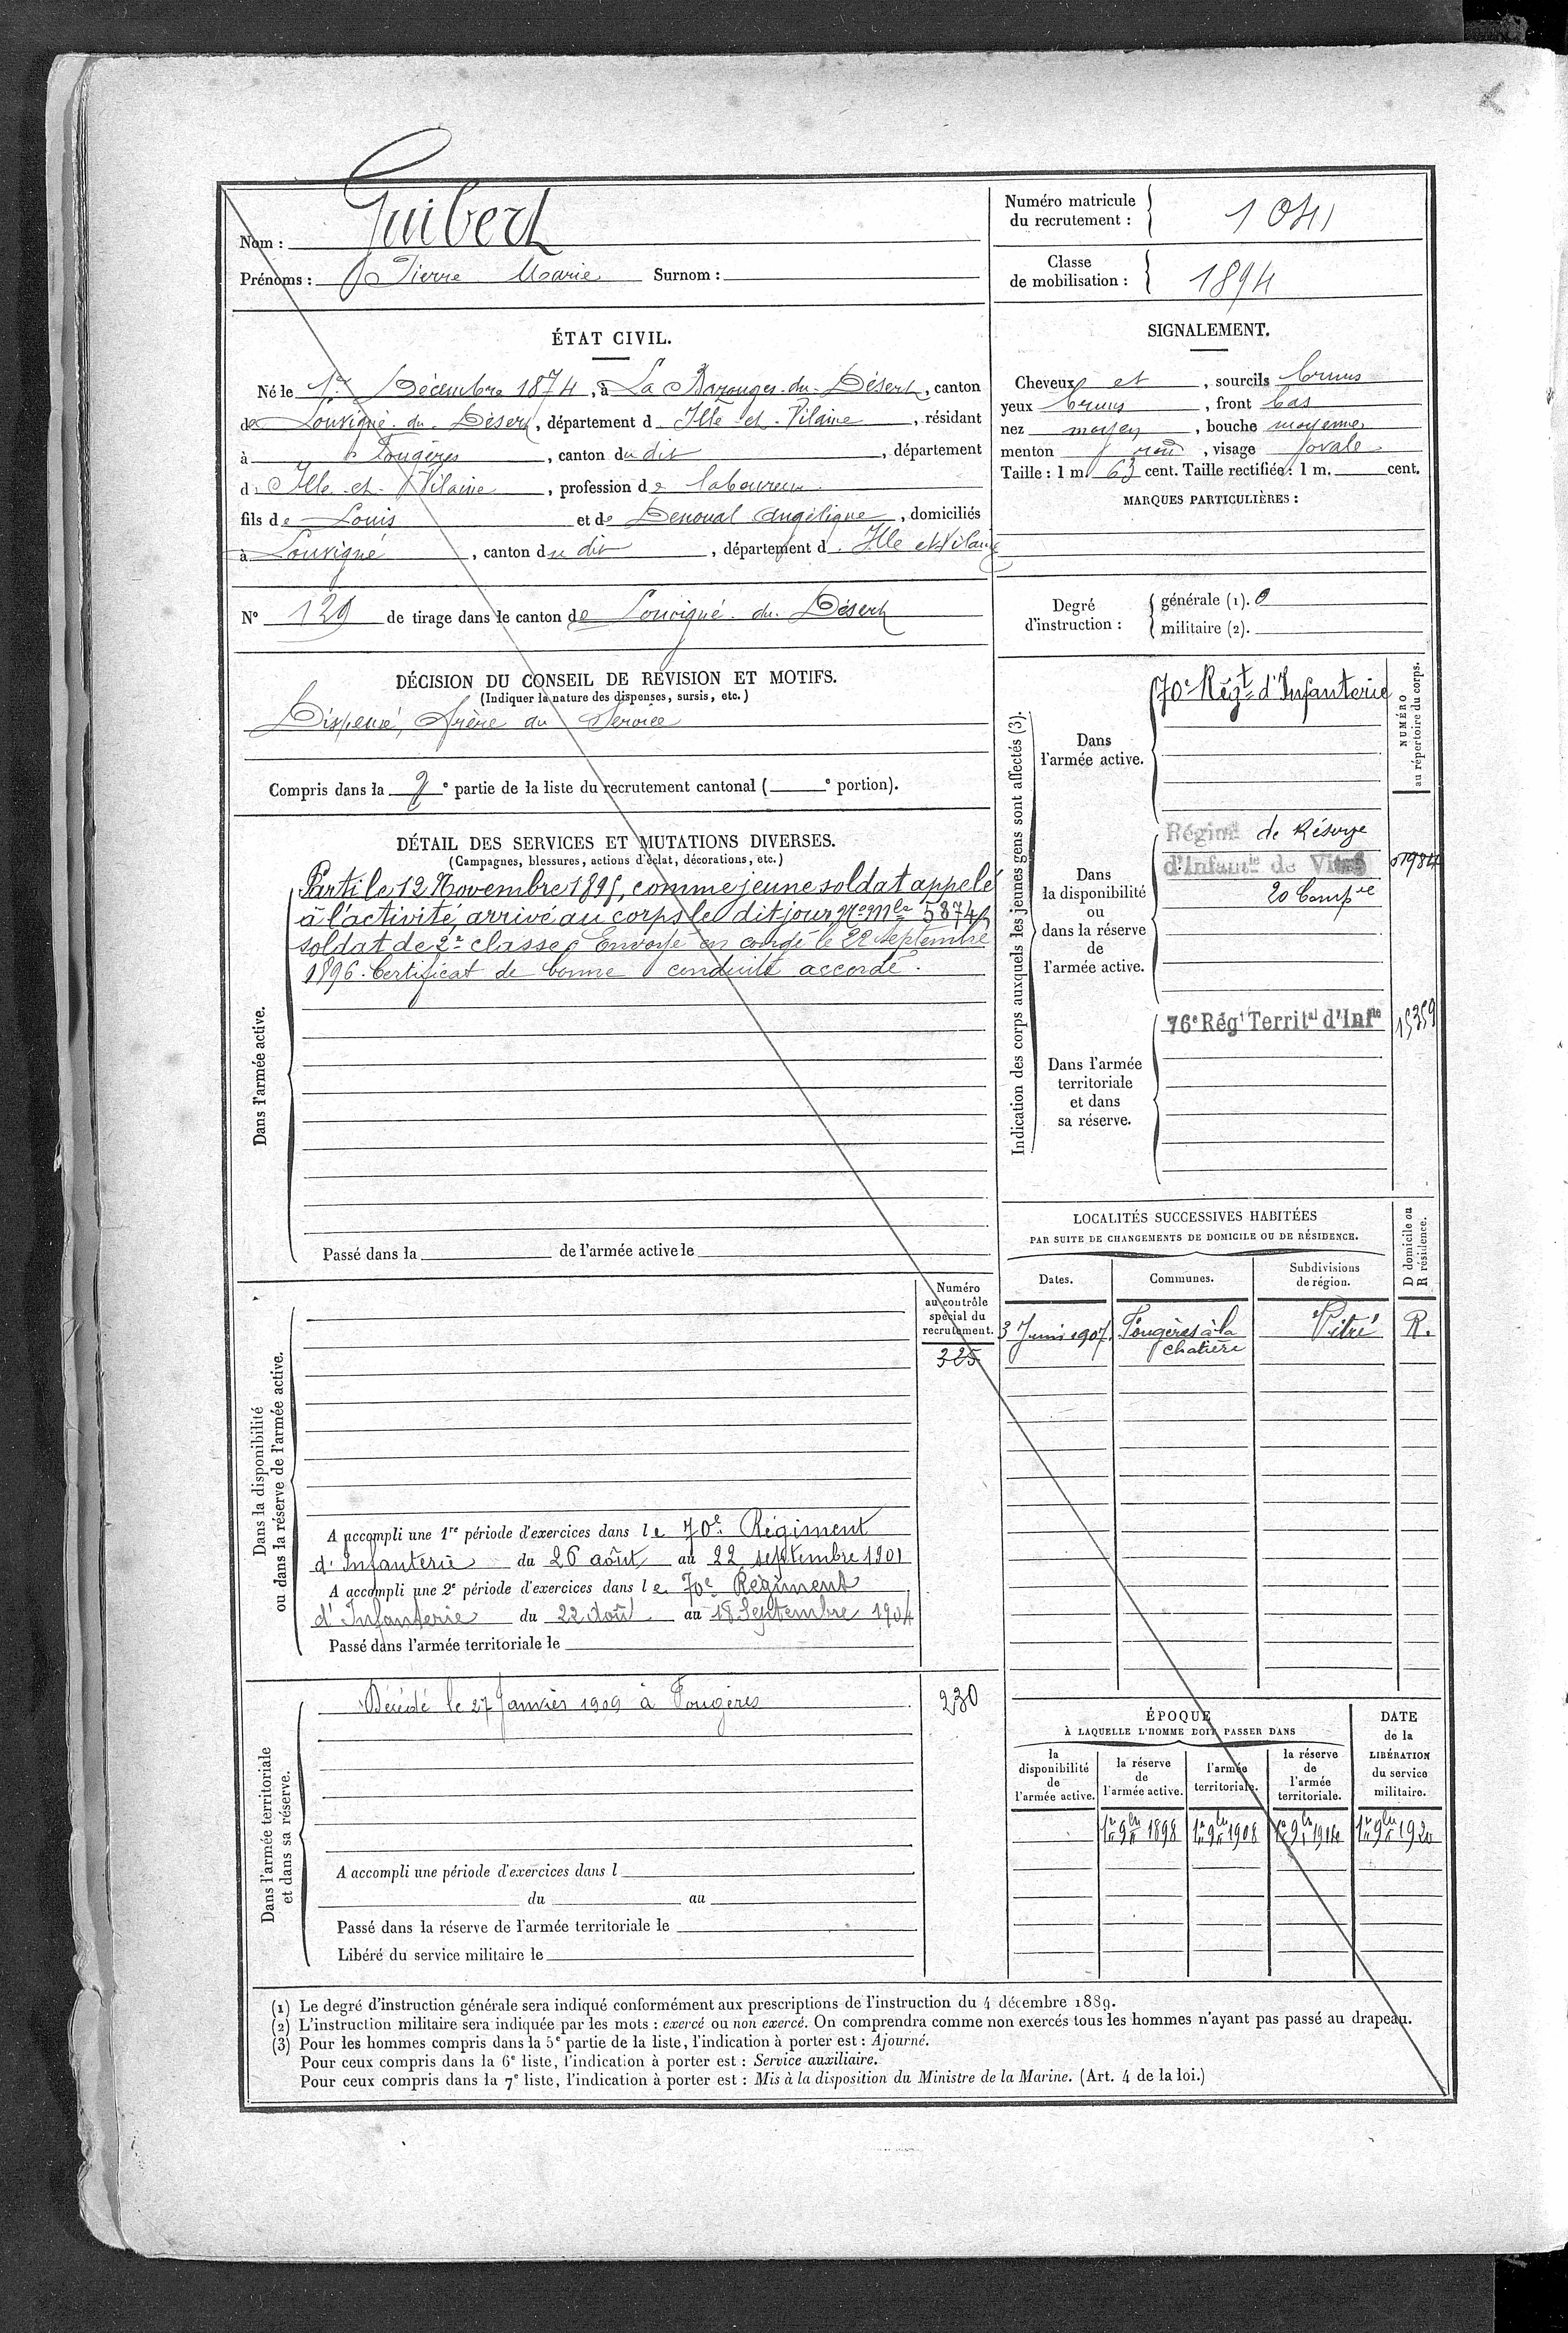 Nom : Guibert
Prénoms : Pierre Marie Surnom :
Numéro matricule
du recrutement : 1041
Classe
de mobilisation : 1894
ÉTAT CIVIL.
Né le 1er Décembre 1874, à La Bazouges-du-Désert, canton
de Louvigné-du-Désert, département d Ille-et-Vilaine, résidant
à Fougères, canton du dit, département
d Ille-et-Vilaine, profession de laboureur
fils de Louis et de Denoual Angélique, domiciliés
à Louvigné, canton du dit, département d Ille et Vilaine
N° 129 de tirage dans le canton de Louvigné-du-Désert
SIGNALEMENT.
Cheveux et, sourcils bruns
yeux bruns, front bas
nez moyen, bouche moyenne
menton rond, visage ovale
Taille : 1 m. 63 cent. Taille rectifiée : 1 m. cent.
MARQUES PARTICULIÈRES :
Degré
d'instruction :
générale (1). 0
militaire (2).
DÉCISION DU CONSEIL DE RÉVISION ET MOTIFS.
(Indiquer la nature des dispenses, sursis, etc.)
Dispensé, frère au Service
Compris dans la 2e partie de la liste du recrutement cantonal ( e portion).
DÉTAIL DES SERVICES ET MUTATIONS DIVERSES.
(Campagnes, blessures, actions d'éclat, décorations, etc.)
Dans l'armée active.
Parti le 12 Novembre 1895, comme jeune soldat appelé
à l'activité, arrivé au corps le dit jour No Mle 5874,
soldat de 2e classe, Envoyé en congé le 22 septembre
1896. Certificat de bonne conduite accordé.
Passé dans la de l'armée active le
Indication des corps auxquels les jeunes gens sont affectés (3).
NUMÉRO
au répertoire du corps.
Dans
l'armée active.
70e Régt d'Infanterie
Dans
la disponibilité
ou
dans la réserve
de
l'armée active.
Régimt de Réserve
d'Infantie de Vitré
20 Compie
01984
Dans l'armée
territoriale
et dans
sa réserve.
76e Régt Territal d'Infie
15359
LOCALITÉS SUCCESSIVES HABITÉES
PAR SUITE DE CHANGEMENTS DE DOMICILE OU DE RÉSIDENCE.
D domicile ou
R résidence.
Dates.
Communes.
Subdivisions
de région.
3 Juin 1907
Fougères à la
chatière
Vitré
R.
Dans la disponibilité
ou dans la réserve de l'armée active.
Numéro
au contrôle
spécial du
recrutement.
325
A accompli une 1re période d'exercices dans le 70e Régiment
d'Infanterie du 26 août au 22 septembre 1901
A accompli une 2e période d'exercices dans le 70e Régiment
d'Infanterie du 22 Août au 18 Septembre 1904
Passé dans l'armée territoriale le
Dans l'armée territoriale
et dans sa réserve.
Décédé le 27 Janvier 1909 à Fougères
230
A accompli une période d'exercices dans l
du au
Passé dans la réserve de l'armée territoriale le
Libéré du service militaire le
ÉPOQUE
À LAQUELLE L'HOMME DOIT PASSER DANS
la
disponibilité
de
l'armée active.
la réserve
de
l'armée active.
l'armée
territoriale.
la réserve
de
l'armée
territoriale.
DATE
de la
LIBÉRATION
du service
militaire.
1er 9bre 1898
1er 9bre 1908
1er 9bre 1914
1er 9bre 1920
(1) Le degré d'instruction générale sera indiqué conformément aux prescriptions de l'instruction du 4 décembre 1889.
(2) L'instruction militaire sera indiquée par les mots : exercé ou non exercé. On comprendra comme non exercés tous les hommes n'ayant pas passé au drapeau.
(3) Pour les hommes compris dans la 5e partie de la liste, l'indication à porter est : Ajourné.
Pour ceux compris dans la 6e liste, l'indication à porter est : Service auxiliaire.
Pour ceux compris dans la 7e liste, l'indication à porter est : Mis à la disposition du Ministre de la Marine. (Art. 4 de la loi.)